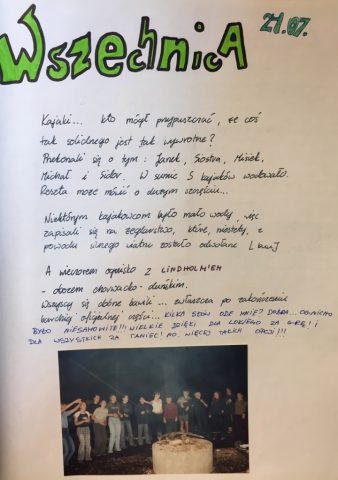 Wszechnica 21.07.
Kajaki... kto mógł przypuszczać, że coś
tak solidnego jest tak wywrotne?
Przekonali się o tym: Janek, Siostra, Misiek,
Michał i Sidor. W sumie 5 kajaków wodowało.
Reszta może mówić o dużym szczęściu...
Niektórym kajakowcom było mało wody, więc
zapisali się na żeglarstwo, które, niestety, z
powodu silnego wiatru zostało odwołane
A wieczorem ognisko z LINDHOLM'EM
- obozem chorwacko - duńskim.
Wszyscy się dobrze bawili... zwłaszcza po zakończeniu
bardziej oficjalnej części... KILKA SŁÓW ODE MNIE? DOBRA... OGNICHO
BYŁO NIESAMOWITE!!! WIELKIE DZIĘKI DLA ŁOKIEGO ZA GRĘ! I
DLA WSZYSTKICH ZA TANIEC! WIĘCEJ TAKICH OPCJI!!!